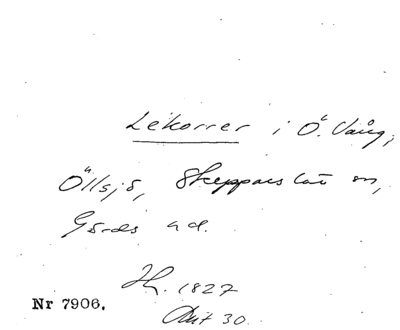 Lekorrer i Ö. Vång,
Öllsjö, Skepparslöv sn,
Gärds hd.
H. 1827
Nr 7906.
30